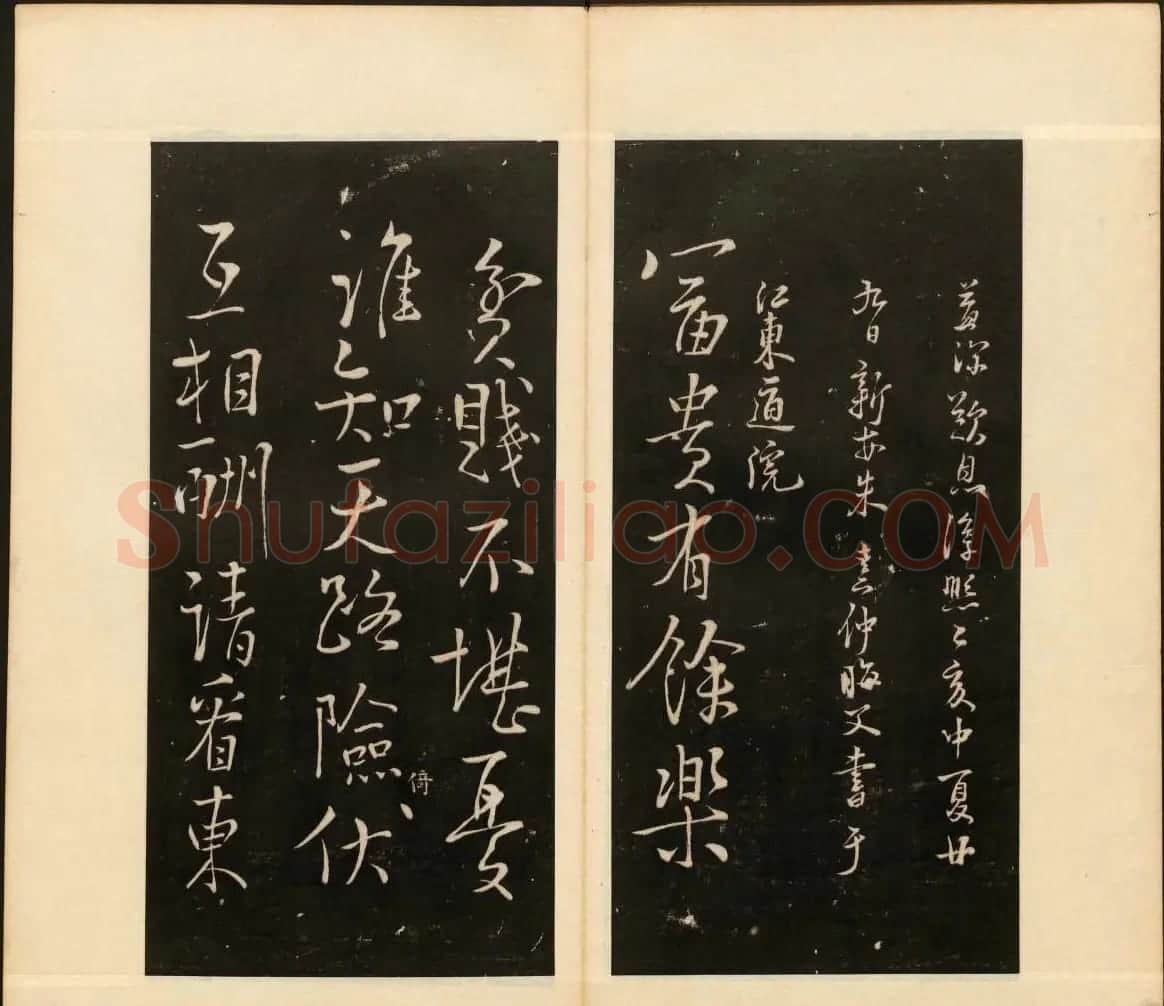 益深歎息淳熙己亥中夏廿
九日新安朱熹仲晦父書于
江東道院
富貴有餘樂
貧賤不堪憂
誰知天路險倚伏
互相酬請看東
Shufaziliao.COM